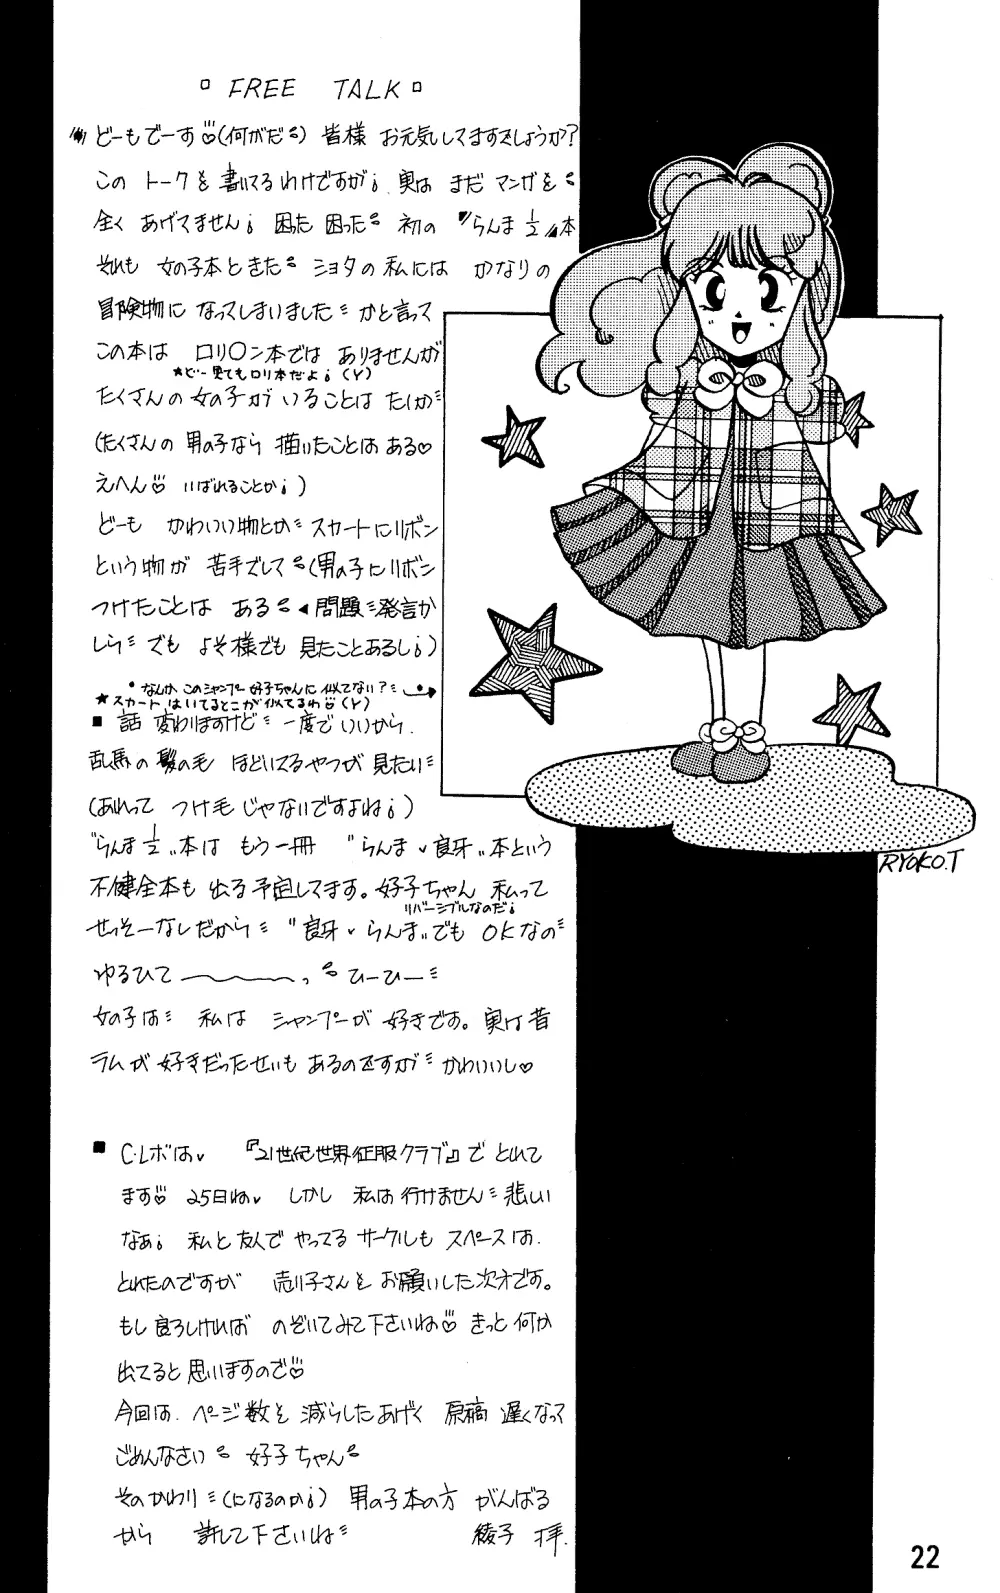 ▫ FREE TALK ▫
どーもでーす♡(何がだ) 皆様 お元気してますでしょうか?
この トークを 書いてるわけですが¡ 実は まだ マンガを
全く あげてません¡ 困った 困った 初の 〝らんま½〟本
それも 女の子本ときた ショタの私には かなりの
冒険物に なってしまいました かと言って
この本は ロリ〇ン本では ありませんが
★どー見てもロリ本だよ¡(Y)
たくさんの 女の子が いることは たしか
(たくさんの 男の子なら 描いたことはある♡
えへん♡ いばれることか¡)
どーも かわいい物とか スカートにリボン
という物が 苦手でして(男の子にリボン
つけたことは ある ◂問題発言か
しら でも よそ様でも 見たことあるし¡)
・なんか このシャンプー 好子ちゃんに似てない?
★スカート はいてるとこが似てるわ♡(Y)
■ 話 変わりますけど 一度でいいから
乱馬の 髪の毛 ほどいてるやつが 見たい
(あれって つけ毛じゃないですよね¡)
〝らんま½〟本は もう一冊 〝らんま♥良牙〟本という
不健全本も 出る予定してます。好子ちゃん 私って
リバーシブルなのだ¡
せっそーなしだから 〝良牙♥らんま〟でも OKなの
ゆるひて〜〜〜っ ひーひー
女の子は 私は シャンプーが 好きです。実は昔
ラムが 好きだったせいも あるのですが かわいいし♡
■ C・レボは♥ 『21世紀世界征服クラブ』で とれて
ます♡ 25日ね♥ しかし 私は 行けません 悲しい
なぁ¡ 私と 友人で やってる サークルも スペースは
とれたのですが 売り子さんを お願いした次才です。
もし 良ろしければ のぞいてみて下さいね♡ きっと 何か
出てると 思いますので♡
今回は ページ数を 減らしたあげく 原稿 遅くなって
ごめんなさい 好子ちゃん
そのかわり(になるのか¡) 男の子本の方 がんばる
から 許して下さいね 綾子 拝.
RYOKO.T
22